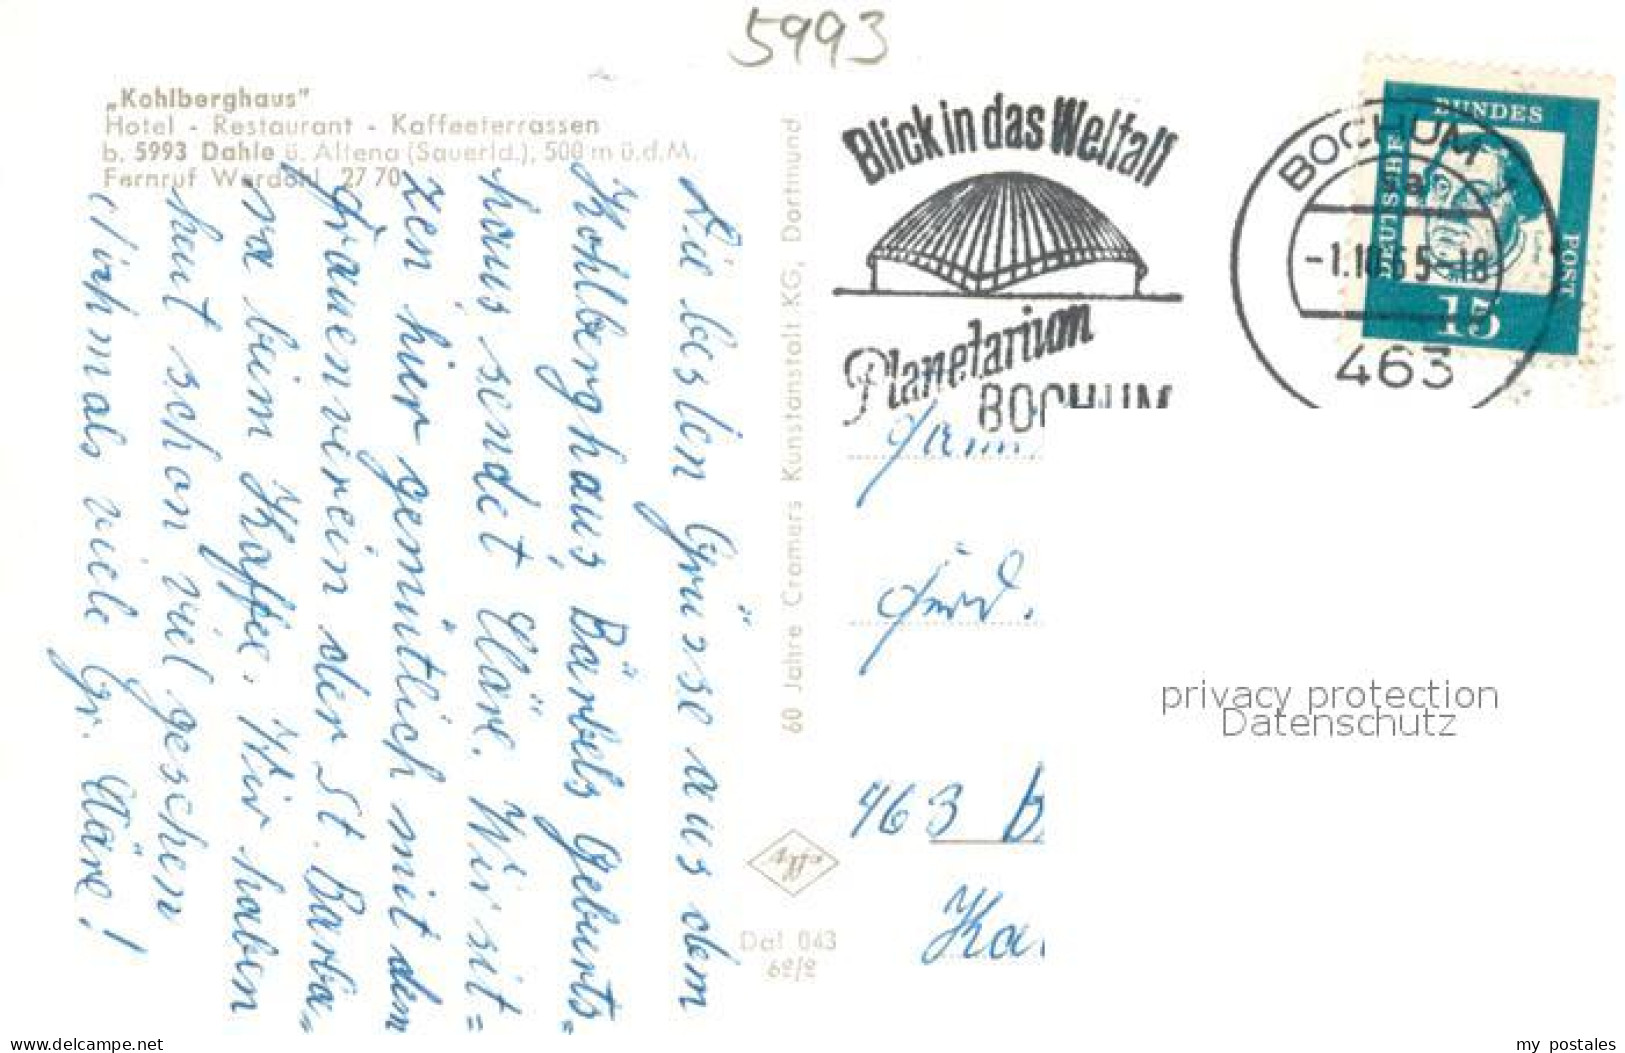 5993
„Kohlberghaus"
Hotel - Restaurant - Kaffeeterrassen
b. 5993 Dahle ü. Altena (Sauerld.), 500 m ü.d.M.
Fernruf Werdohl 27 70
Die besten Grüsse aus dem
Kohlberghaus, Bärbels Geburts=
haus, sendet Cläre. Wir sit=
zen hier gemütlich mit dem
Frauenverein der St. Barba=
ra beim Kaffee. Wir haben
heut schon viel gesehen
Nochmals viele Gr. Cläre!
60 Jahre Cramers Kunstanstalt KG, Dortmund
Dal 043
Blick in das Weltall
Planetarium
BOCHUM
BOCHUM 1
463
DEUTSCHE
BUNDES
POST
15
Luther
Fam.
463 B
Ka
privacy protection
Datenschutz
www.delcampe.net
my_postales